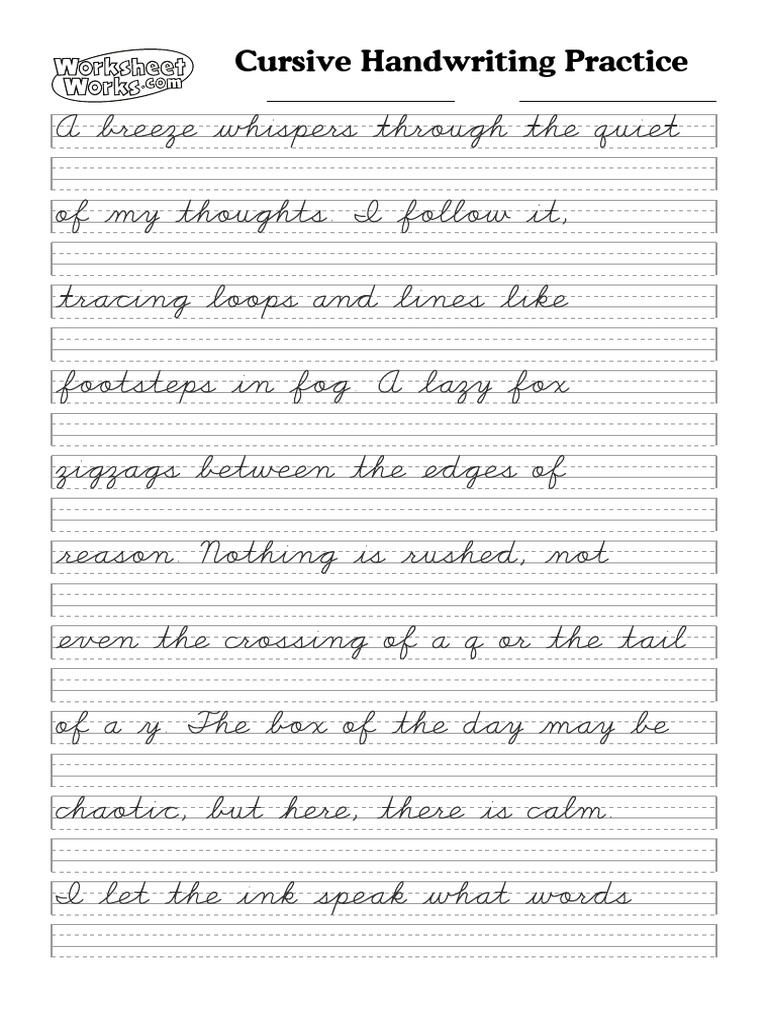 Worksheet
Works.com
Cursive Handwriting Practice
A breeze whispers through the quiet
of my thoughts. I follow it,
tracing loops and lines like
footsteps in fog. A lazy fox
zigzags between the edges of
reason. Nothing is rushed, not
even the crossing of a q or the tail
of a y. The box of the day may be
chaotic, but here, there is calm.
I let the ink speak what words